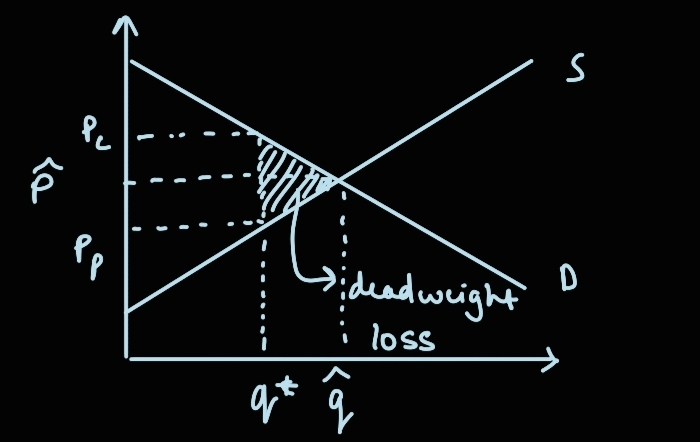 S
P_c
p̂
P_p
D
deadweight
loss
q* q̂